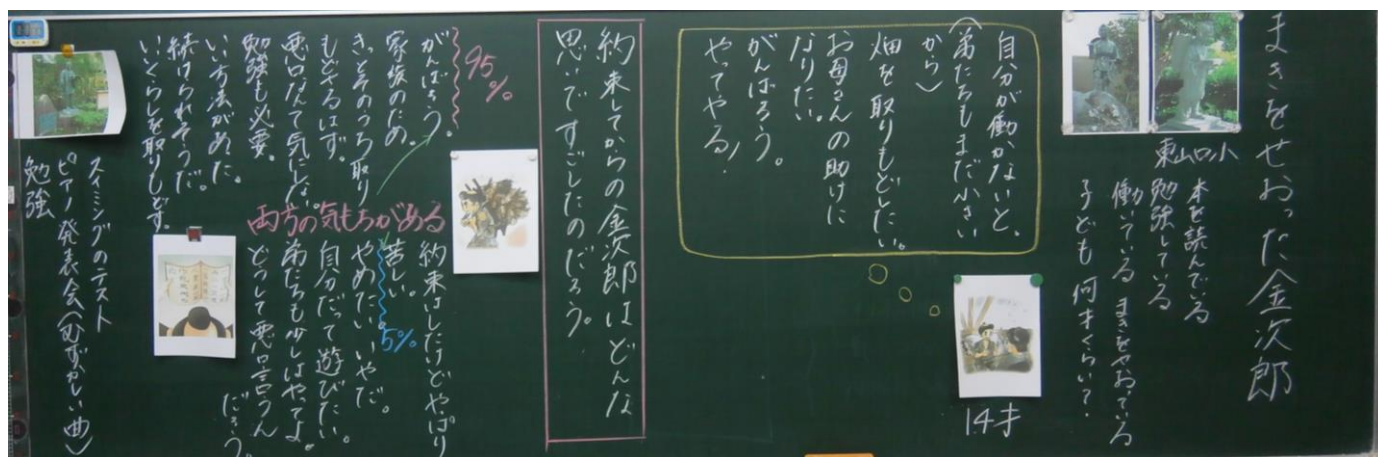 まきをせおった金次郎
東山口小
本を読んでいる
勉強している
働いている まきをせおっている
子ども 何才くらい?
14才
自分が働かないと。
(弟たちもまだ小さい
から)
畑を取りもどしたい。
お母さんの助けに
なりたい。
がんばろう。
やってやる!
約束してからの金次郎はどんな
思いですごしたのだろう。
95%
がんばろう。
家族のため。
きっとそのうち取り
もどせるはず。
悪口なんて気にしない。
勉強も必要。
いい方法があった。
続けられそうだ。
いいくらしを取りもどす。
両方の気もちがある
約束はしたけどやっぱり
苦しい。
5%
やめたい いやだ。
自分だって遊びたい。
弟たちも少しはやってよ。
どうして悪口言うん
だろう。
スイミングのテスト
ピアノ発表会(むずかしい曲)
勉強